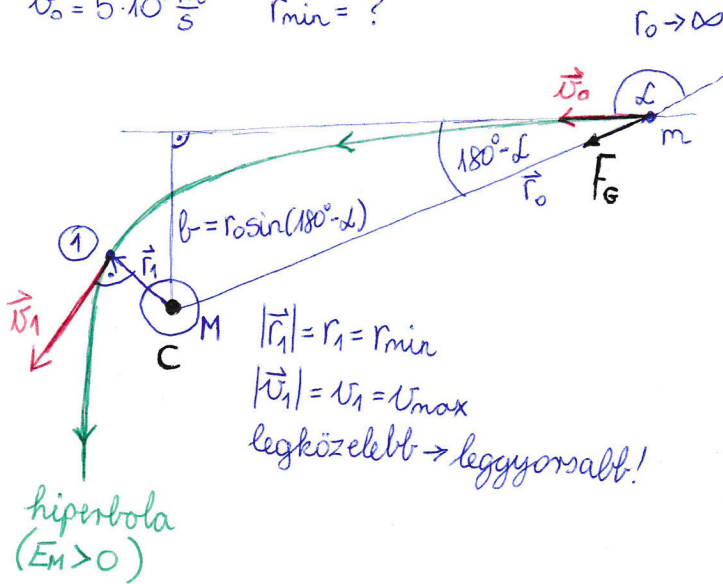 v₀ = 5·10 m/s   r_min = ?
r₀ → ∞
v⃗₀
α
m
180° - α
F_G
r⃗₀
b = r₀ sin(180° - α)
1
r⃗₁
v⃗₁
M
C
|r⃗₁| = r₁ = r_min
|v⃗₁| = v₁ = v_max
legközelebb → leggyorsabb!
hiperbola
(E_M > 0)